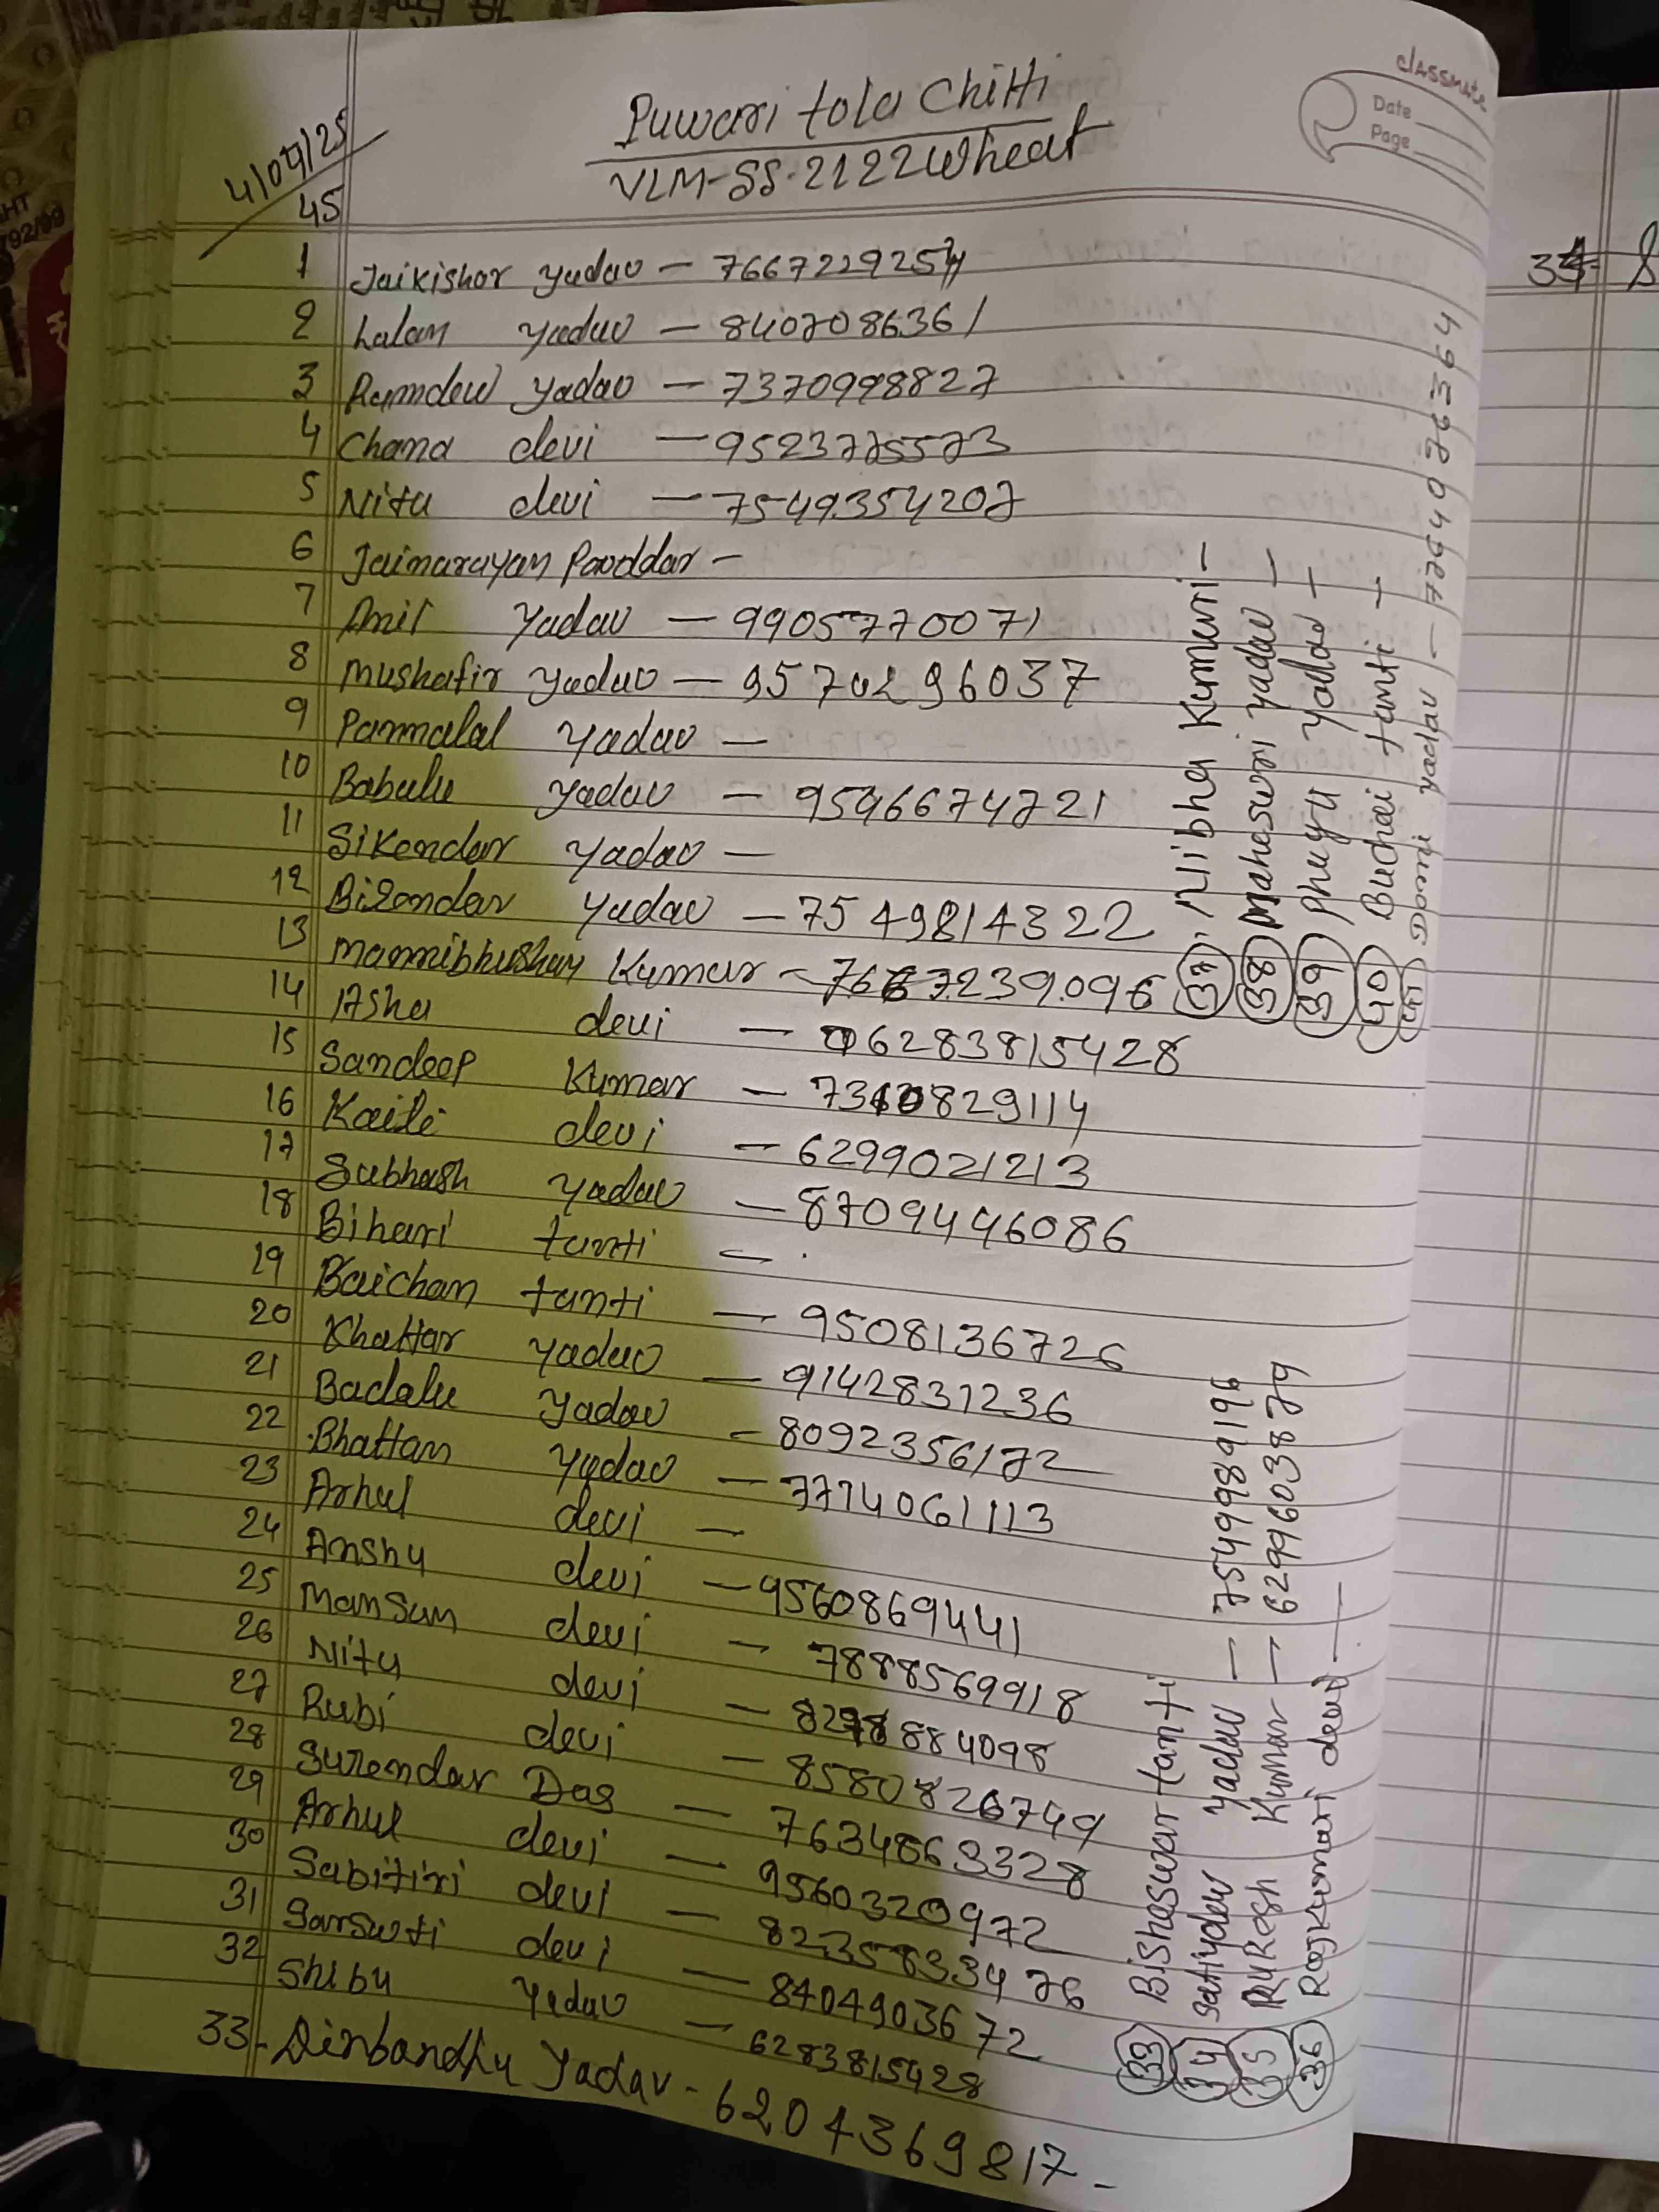 classmate
Date
Page
4/09/25
45
Puwari tola Chitti
VLM-SS-2122 Wheat
1 Jaikishor yadav -
2 Lalan yadav - 8407086361
3 Ramdew yadav - 7370998827
4 Chana devi - 9523775573
5 Nitu devi - 7549354207
6 Jainarayan Pooddar -
7 Anil Yadav - 9905770071
8 Mushafir yadav - 9570296037
9 Pannalal yadav -
10 Babulu yadav - 9546674721
11 Sikendar yadav -
12 Birendar yadav - 7549814322
13 Mannibhushan Kumar - 7667239096
14 Asha devi - 06283815428
15 Sandeep Kumar -
16 Kaili devi - 6299021213
17 Subhash yadav - 8709446086
18 Bihari tanti -
19 Baichan tanti - 9508136726
20 Khattar yadav - 9142831236
21 Badalu yadav - 8092356172
22 Bhattan yadav - 7714061113
23 Arhul devi -
24 Anshu devi - 9560869441
25 Mansun devi - 7888569918
26 Nitu devi -
27 Rubi devi - 8580826749
28 Surendar Das - 7634863328
29 Arhul devi - 9560320972
30 Sabitiri devi - 8235833476
31 Sarswti devi - 8404903672
32 Shibu Yadav - 6283815428
33 - Dinbandhu Yadav - 6204369817 -
33 Bisheswar tanti
34 Satiydew yadav - 7549989196
35 Rukesh Kumar - 6299603879
36 Rajkumari devi -
37. Nibha Kumari -
38 Maheswri yadav -
39 Phuyu yadav -
40 Buchai tanti -
41 Domi yadav - 7754976364